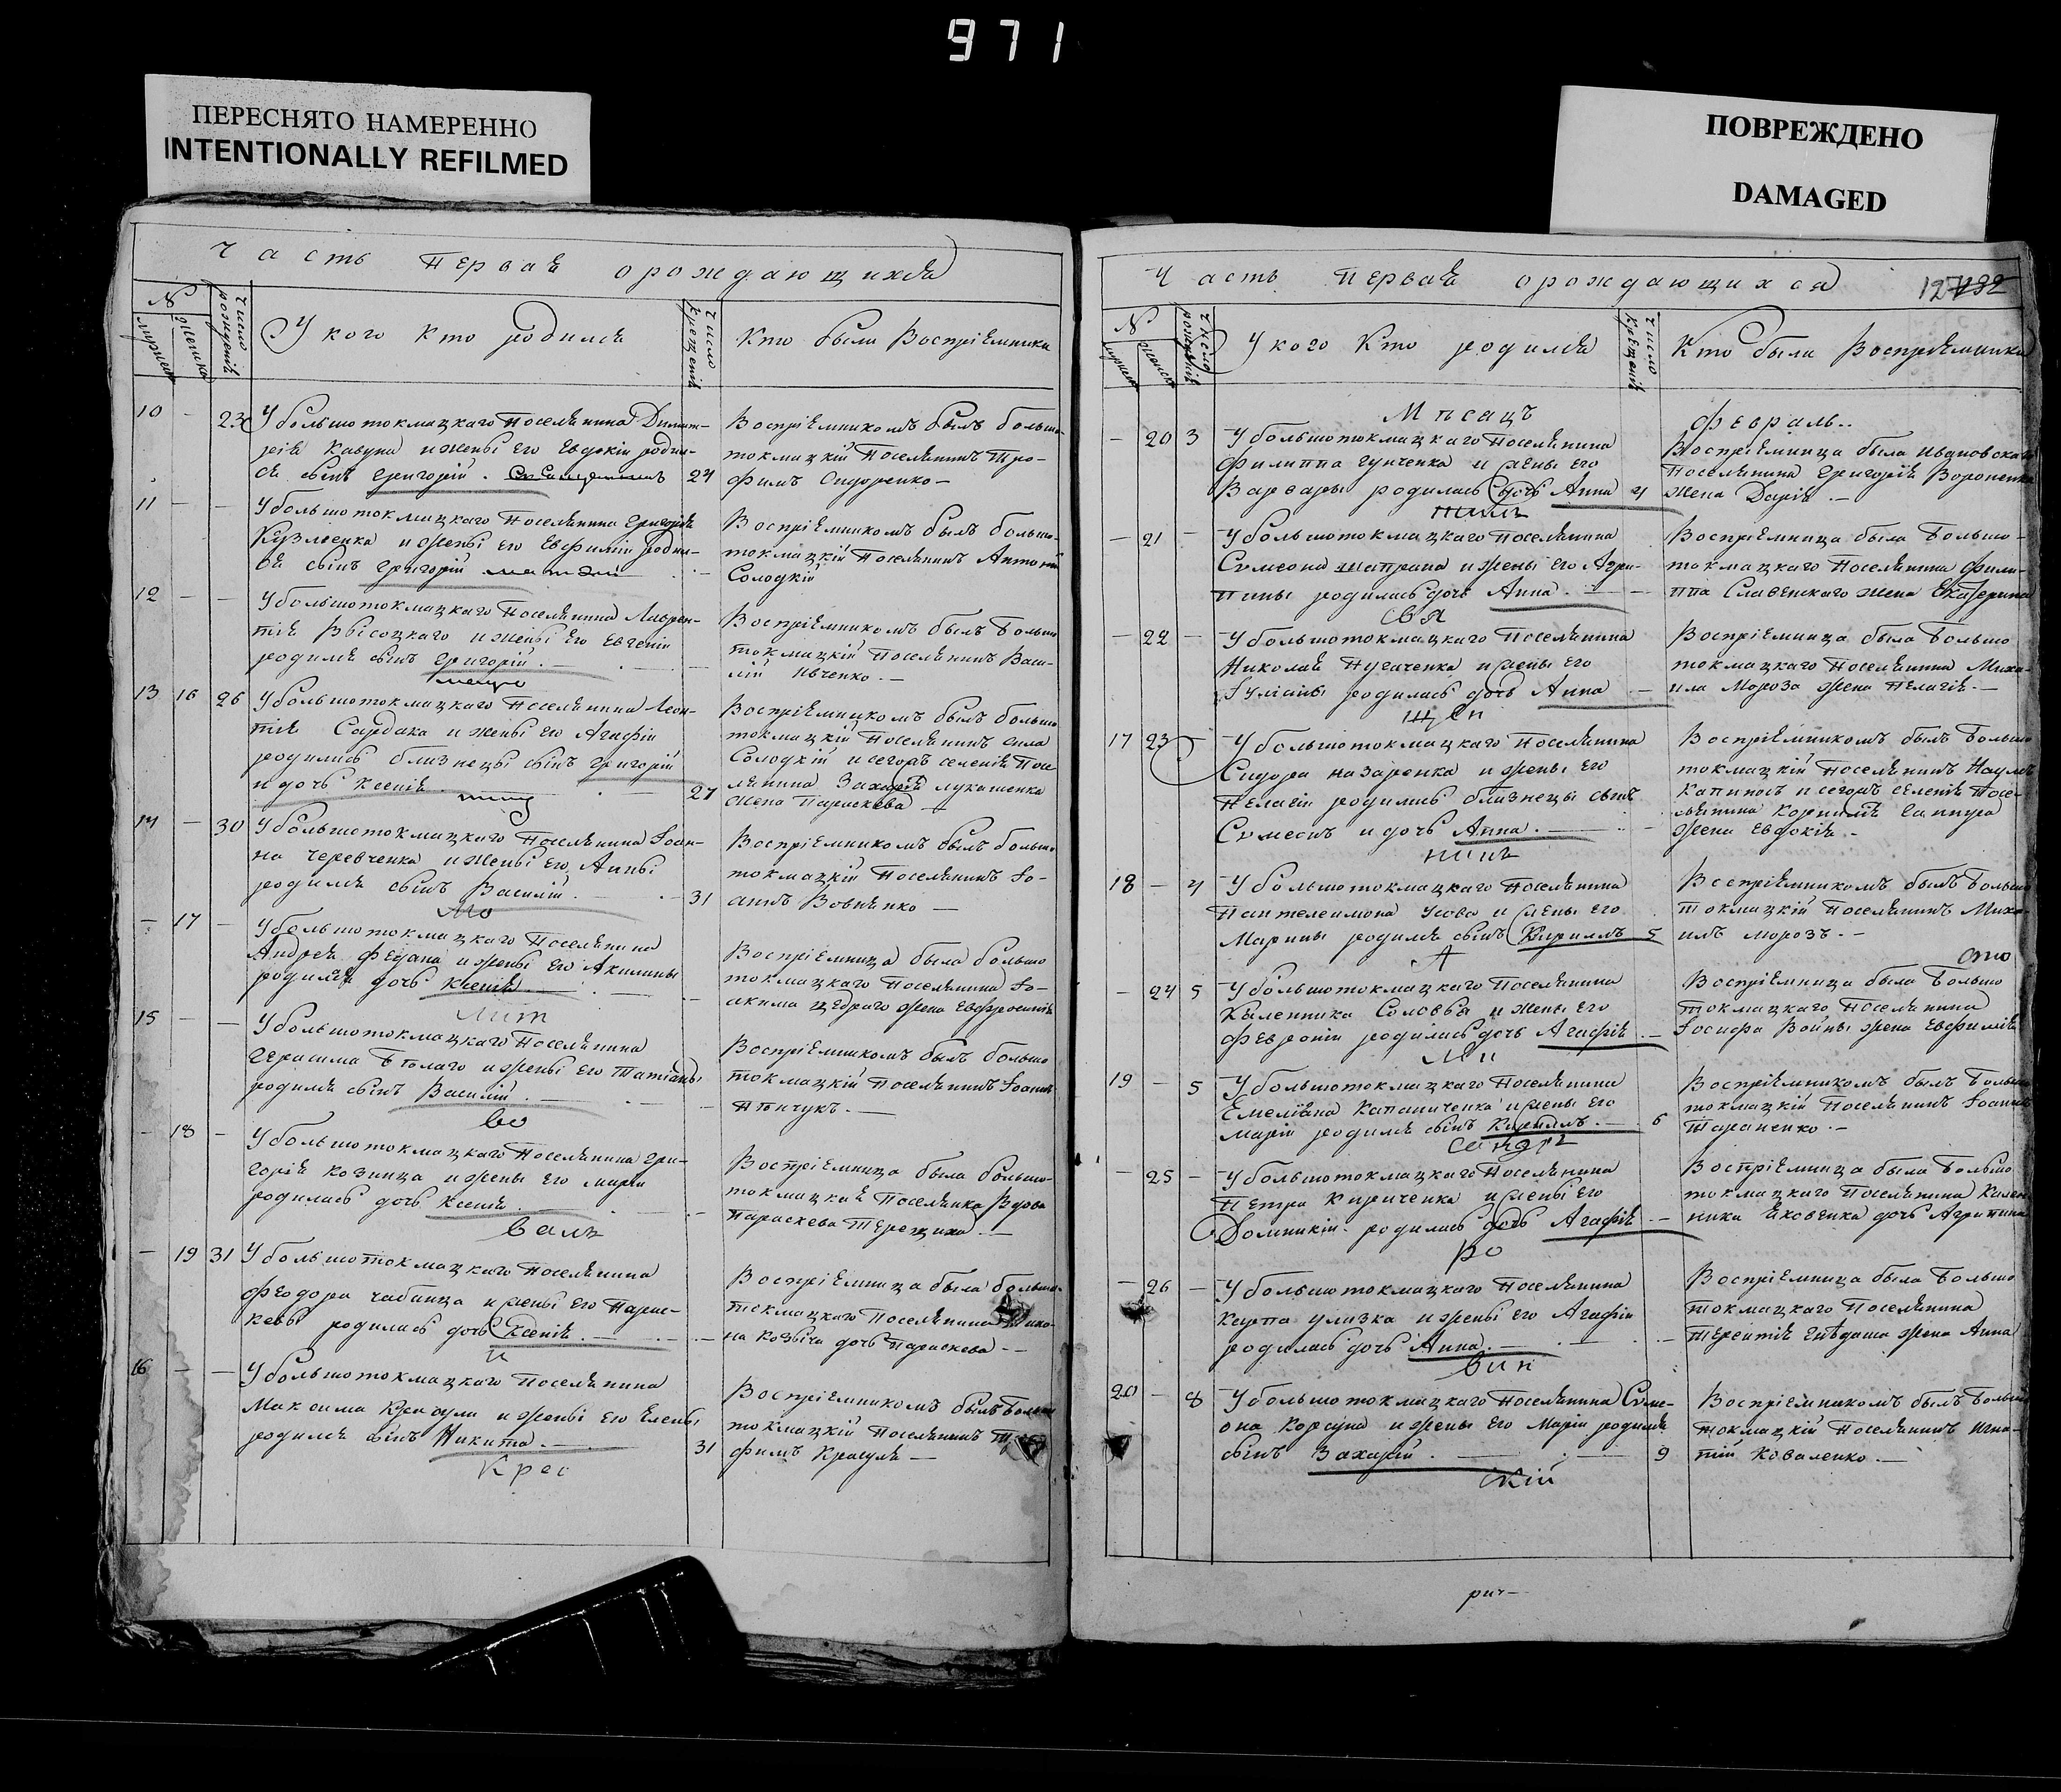 971
ПЕРЕСНЯТО НАМЕРЕННО
INTENTIONALLY REFILMED
ПОВРЕЖДЕНО
DAMAGED
Часть первая о рождающихся
№
Число рожденія
У кого кто родился
Число крещенія
Кто были Воспріемники
10 - 23 У большотокмацкаго поселянина Димит-
рія Кавуна и жены его Евдокіи родил-
ся сынъ Григорій. 24
Воспріемникомъ былъ больше-
токмацкій поселянинъ Тро-
фимъ Сидоренко —
11 - - У большотокмацкаго поселянина Григорія
и жены его Евфиміи родил-
ся сынъ Григорій -
Воспріемникомъ былъ больше-
токмацкій поселянинъ Антоній
Солодкій
12 - - У большотокмацкаго поселянина Лаврен-
тія Высоцкаго и жены его Евгеніи
родился сынъ Григорій. —
Воспріемникомъ былъ больше
токмацкій поселянинъ Васи-
лій Ивченко. —
13 16 26 У большотокмацкаго поселянина Леон-
тія Сардака и жены его Агафіи
родились близнецы сынъ Григорій
и дочь Ксенія. 27
Воспріемникомъ былъ больше
токмацкій поселянинъ Сила
Солодкій и сегожъ селенія посе
лянина Захарія Лукашенка
жена Параскева —
14 - 30 У большотокмацкаго поселянина Іоан-
на Черевченка и жены его Анны
родился сынъ Василій. 31
Воспріемникомъ былъ больше
токмацкій поселянинъ Іо-
аннъ Вовченко —
- 17 - У большотокмацкаго поселянина
Андрея Федана и жены его Акилины
родилась дочь Ксенія. —
Воспріемница была больше
токмацкаго поселянина Іо-
акима Щедраго жена Евфросинія
15 - - У большотокмацкаго поселянина
Герасима Бѣлаго и жены его Татіаны
родился сынъ Василій. —
Воспріемникомъ былъ больше
токмацкій поселянинъ Іоаннъ
- 18 - У большотокмацкаго поселянина Гри-
горія Козинца и жены его Маріи
родилась дочь Ксенія
Воспріемница была больше-
токмацкая поселянка вдова
Параскева —
- 19 31 У большотокмацкаго поселянина
Феодора Чабанца и жены его Парас-
кевы родилась дочь Ксенія. —
Воспріемница была больше-
токмацкаго поселянина
дочь Параскева —
16 - - У большотокмацкаго поселянина
Максима Красули и жены его Елены
родился сынъ Никита. — 31
Воспріемникомъ былъ больше
токмацкій поселянинъ
фимъ Красуля —
Часть первая о рождающихся
127
№
Число рожденія
У кого кто родился
Число крещенія
Кто были Воспріемники
Мѣсяцъ Февраль..
- 20 3 У большотокмацкаго поселянина
Филиппа Гунченка и жены его
Варвары родилась дочь Анна 4
Воспріемница была Ивановскаго
поселянина Григорія Вороненка
жена Дарія. —
- 21 - У большотокмацкаго поселянина
Сѵмеона Шапрана и жены его Агри-
пины родилась дочь Анна. —
Воспріемница была больше-
токмацкаго поселянина Фили-
ппа Славенскаго жена Екатерина
- 22 - У большотокмацкаго поселянина
Николая Пугаченка и жены его
Іуліаны родилась дочь Анна —
Воспріемница была больше
токмацкаго поселянина Миха-
ила Мороза жена Пелагія. —
17 23 - У большотокмацкаго поселянина
Сидора Назаренка и жены его
Пелагіи родились близнецы сынъ
Сѵмеонъ и дочь Анна. —
Воспріемникомъ былъ больше
токмацкій поселянинъ Наумъ
Капиносъ и сегожъ селенія посе-
лянина Корнилія
жена Евдокія. —
18 - 4 У большотокмацкаго поселянина
Пантелеимона Усова и жены его
Марины родился сынъ Кириллъ 5
Воспріемникомъ былъ больше
токмацкій поселянинъ Миха-
илъ Морозъ. —
- 24 5 У большотокмацкаго поселянина
Каленника Соловья и жены его
Февроніи родилась дочь Агафія. —
Воспріемница была больше
токмацкаго поселянина
Іосифа Войны жена Евфимія
19 - 5 У большотокмацкаго поселянина
Емеліана Капаниченка и жены его
Маріи родился сынъ Кириллъ. — 6
Воспріемникомъ былъ больше
токмацкій поселянинъ Іоаннъ
Тараненко. —
- 25 - У большотокмацкаго поселянина
Петра Кириченка и жены его
Домникіи родилась дочь Агафія —
Воспріемница была больше
токмацкаго поселянина Кален
ника Яковенка дочь Агрипина
- 26 - У большотокмацкаго поселянина
Карпа Улизка и жены его Агафіи
родилась дочь Анна. —
Воспріемница была больше
токмацкаго поселянина
Терентія Гнѣдаша жена Анна
20 - 8 У большотокмацкаго поселянина Сѵме-
она Корсуна и жены его Маріи родился
сынъ Захарій. — 9
Воспріемникомъ былъ больше
токмацкій поселянинъ Игна-
тій Коваленко. —